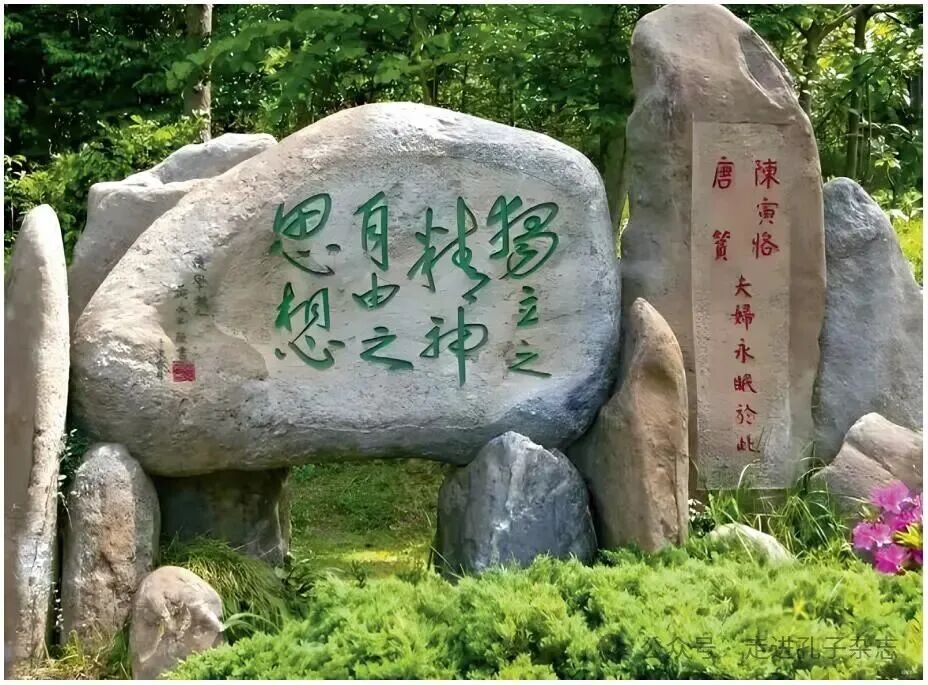 陳寅恪
唐篔
夫婦永眠於此
獨立之
精神
自由之
思想
公众号 · 走进孔子杂志